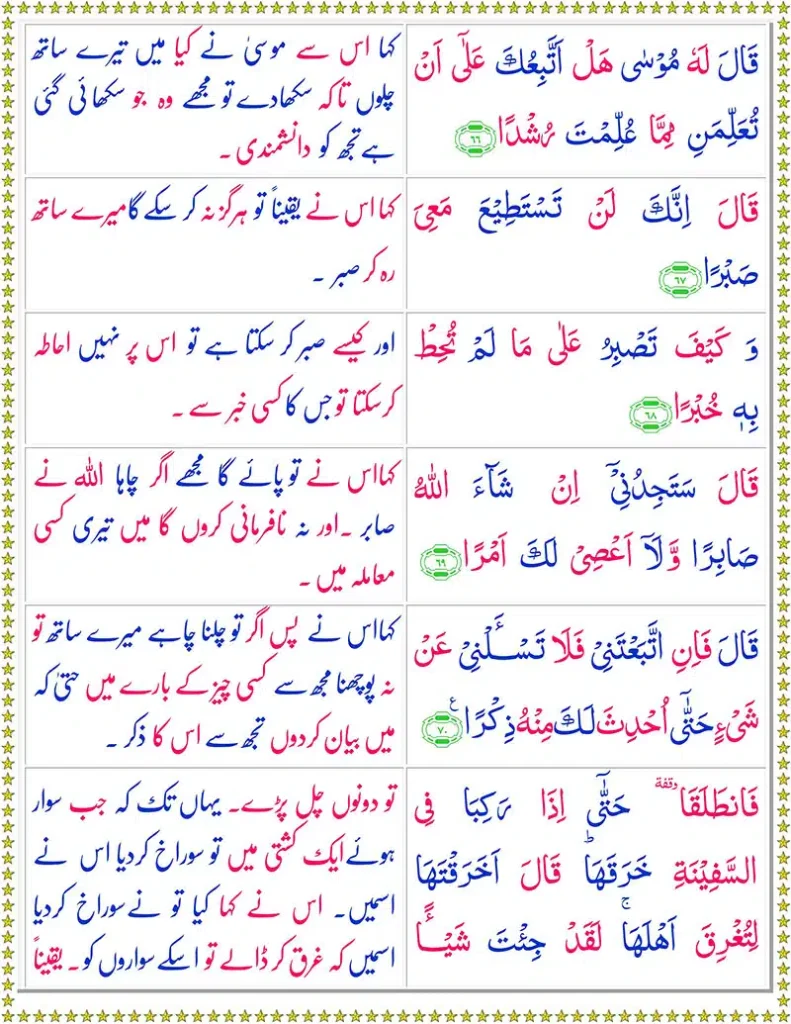 قَالَ لَهٗ مُوْسٰى هَلْ اَتَّبِعُكَ عَلٰۤى اَنْ
تُعَلِّمَنِ مِمَّا عُلِّمْتَ رُشْدًا ﴿۶۶﴾
کہا اس سے موسیٰ نے کیا میں تیرے ساتھ
چلوں تاکہ سکھادے تو مجھے وہ جو سکھائی گئی
ہے تجھ کو دانشمندی۔
قَالَ اِنَّكَ لَنْ تَسْتَطِيْعَ مَعِىَ
صَبْرًا ﴿۶۷﴾
کہا اس نے یقیناً تو ہرگز نہ کر سکے گا میرے ساتھ
رہ کر صبر ۔
وَ كَيْفَ تَصْبِرُ عَلٰى مَا لَمْ تُحِطْ
بِهٖ خُبْرًا ﴿۶۸﴾
اور کیسے صبر کر سکتا ہے تو اس پر نہیں احاطہ
کرسکتا تو جس کا کسی خبر سے ۔
قَالَ سَتَجِدُنِىْۤ اِنْ شَآءَ اللّٰهُ
صَابِرًا وَّلَاۤ اَعْصِىْ لَكَ اَمْرًا ﴿۶۹﴾
کہا اس نے تو پائے گا مجھے اگر چاہا اللہ نے
صابر ۔اور نہ نافرمانی کروں گا میں تیری کسی
معاملہ میں ۔
قَالَ فَاِنِ اتَّبَعْتَنِىْ فَلَا تَسْـَٔـلْنِىْ عَنْ
شَىْءٍ حَتّٰٓى اُحْدِثَ لَكَ مِنْهُ ذِكْرًا ﴿۷۰﴾ ع
کہا اس نے پس اگر تو چلنا چاہے میرے ساتھ تو
نہ پوچھنا مجھ سے کسی چیز کے بارے میں حتیٰ کہ
میں بیان کردوں تجھ سے اس کا ذکر ۔
فَانطَلَقَا وقفة حَتّٰٓى اِذَا رَكِبَا فِى
السَّفِيْنَةِ خَرَقَهَا ؕ قَالَ اَخَرَقْتَهَا
لِتُغْرِقَ اَهْلَهَا ۚ لَقَدْ جِئْتَ شَيْـًٔـا
تو دونوں چل پڑے۔ یہاں تک کہ جب سوار
ہوئے ایک کشتی میں تو سوراخ کردیا اس نے
اسمیں۔ اس نے کہا کیا تو نے سوراخ کردیا
اسمیں کہ غرق کر ڈالے تو اسکے سواروں کو۔ یقیناً